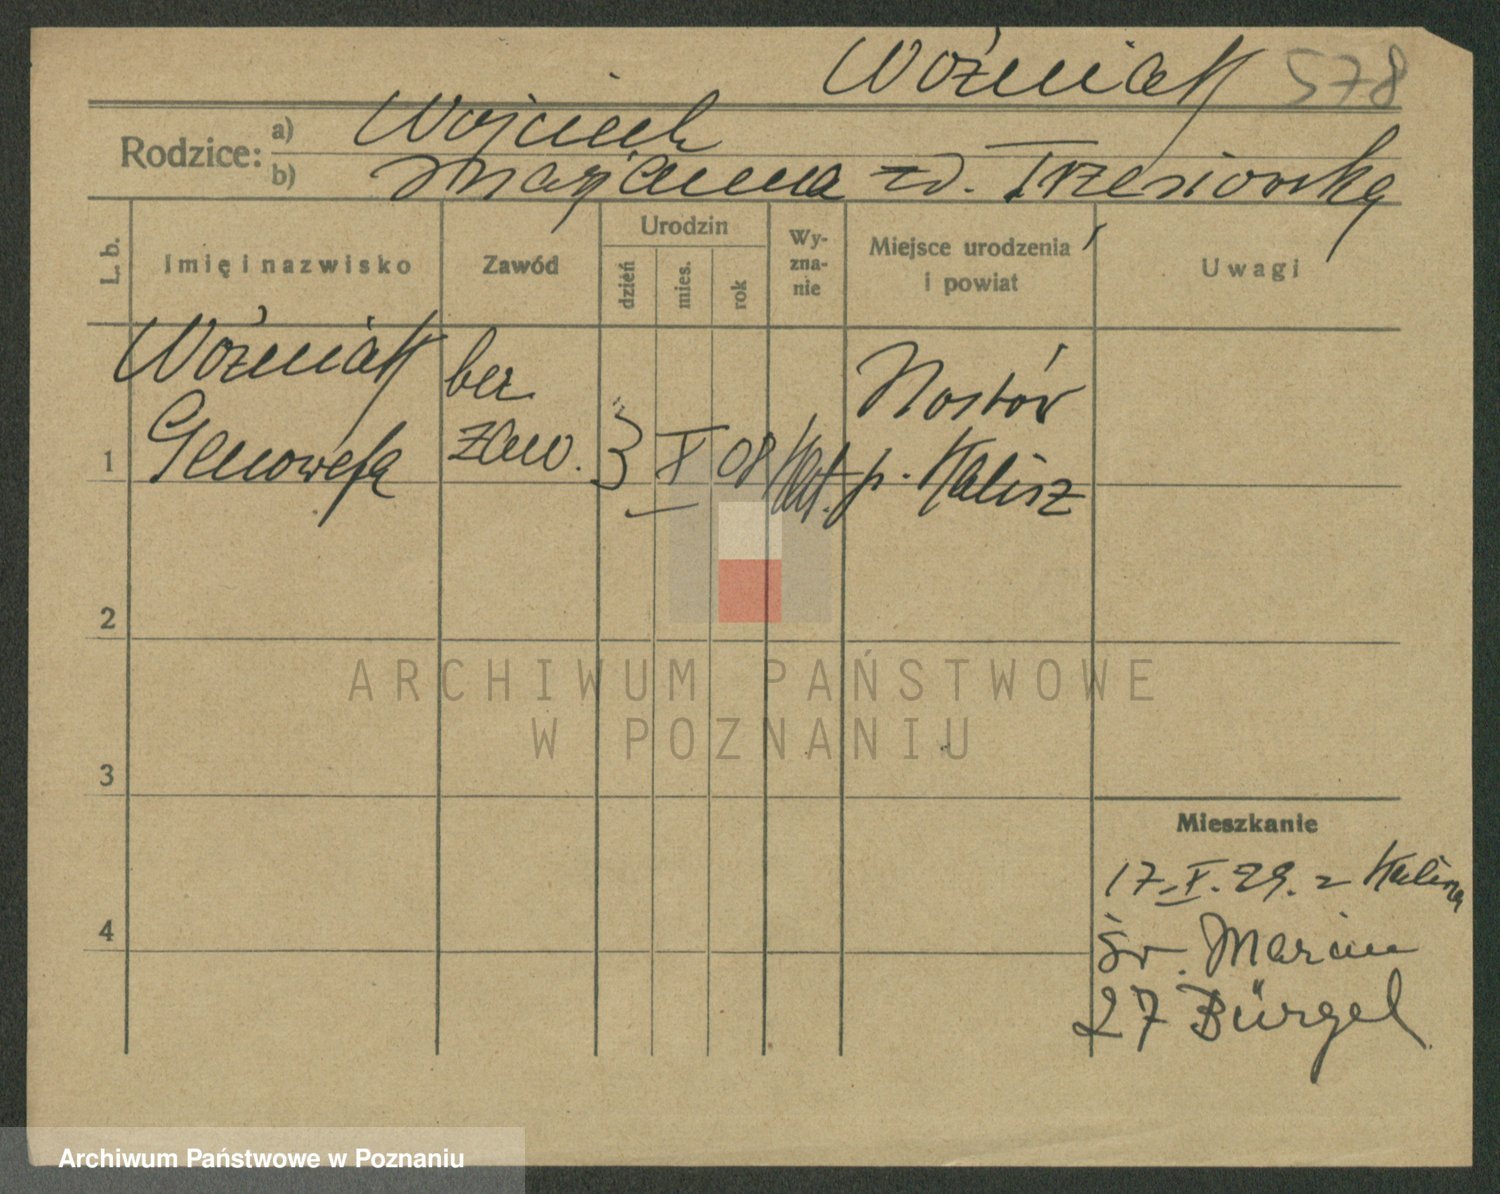 Woźniak 578
Rodzice: a) Wojciech
b) Marjanna zd. Trzesiowska
L. b.
Imię i nazwisko
Zawód
Urodzin
dzień
mies.
rok
Wy-
zna-
nie
Miejsce urodzenia
i powiat
Uwagi
1
Woźniak
Genowefa
bez
zaw.
3
X
08
kat.
p. Kalisz
2
3
4
Mieszkanie
17.X.29. z Kalisza
św. Marcin
27 Bürgel
ARCHIWUM PAŃSTWOWE
W POZNANIU
Archiwum Państwowe w Poznaniu